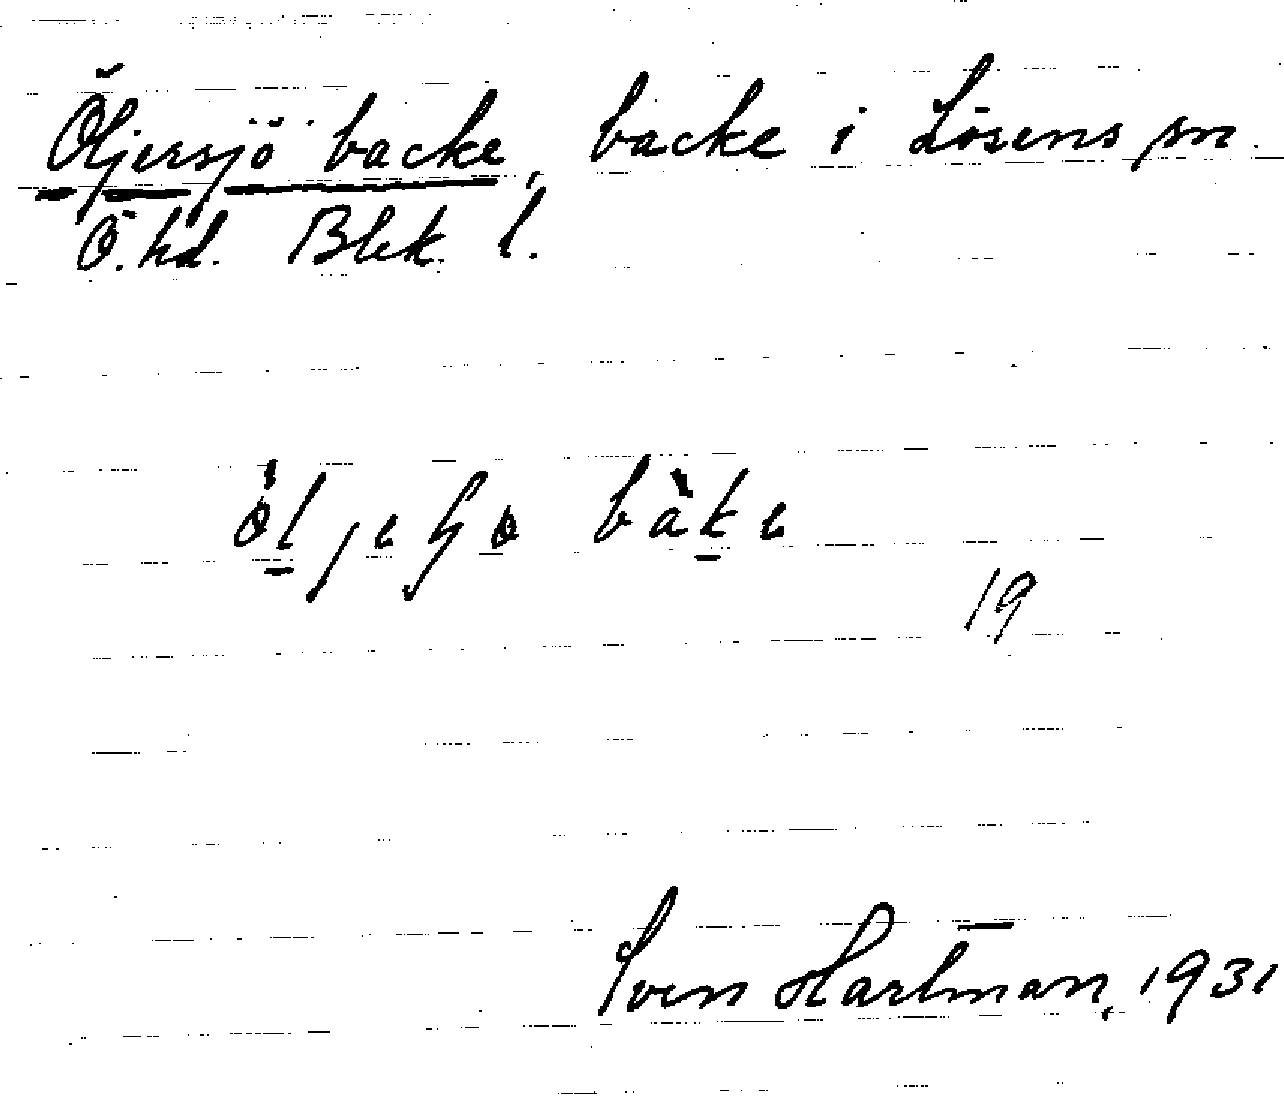 Öljersjö backe, backe i Lösens sn.
Ö. hd. Blek. l.
19
Sven Hartman, 1931